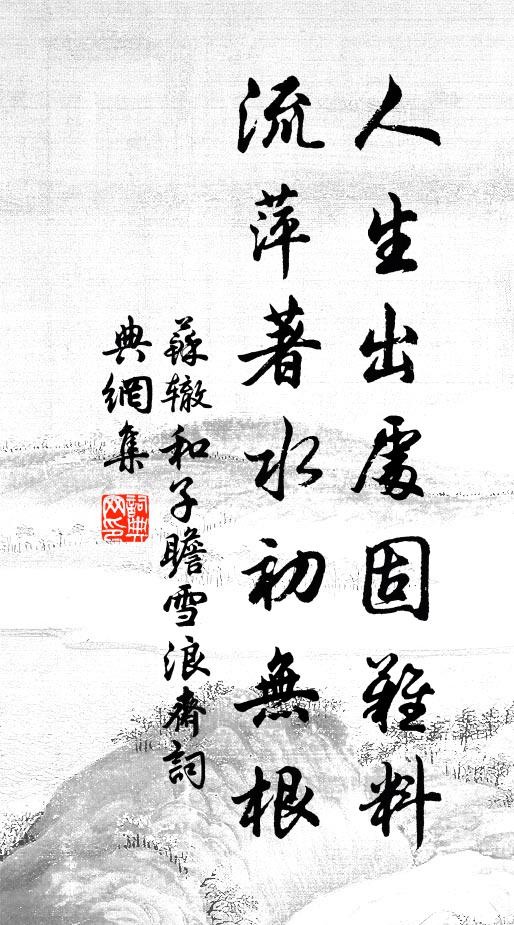 人生出處固難料
流萍著水初無根
蘇辙和子瞻雪浪齋詞
典網集
詞典网印